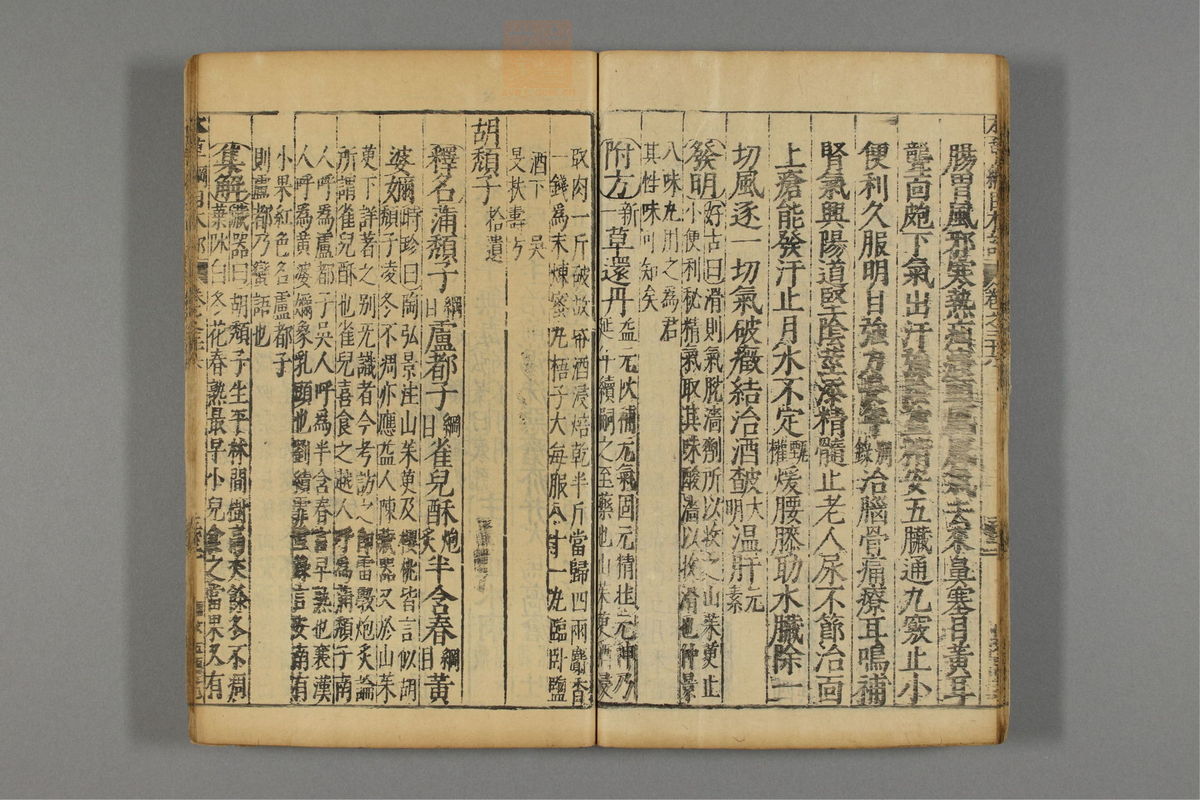 腸胃風邪寒熱疝瘕頭風風氣去來鼻塞目黃耳
聾面皰下氣出汗強陰益精安五臟通九竅止小
便利久服明目強力長年別錄治腦骨痛療耳鳴補
腎氣興陽道堅陰莖添精髓止老人尿不節治面
上瘡能發汗止月水不定甄權煖腰膝助水臟除一
切風逐一切氣破癥結治酒皶大明溫肝元素
發明好古曰滑則氣脫濇劑所以收之山茱萸止
小便利秘精氣取其味酸濇以收滑也仲景
八味丸用之為君
其性味可知矣
附方新一草還丹益元陽補元氣固元精壯元神乃
延年續嗣之至藥也山茱萸酒浸
取肉一斤破故帋酒浸焙乾半斤當歸四兩麝香
一錢為末煉蜜丸梧子大每服八十一丸臨臥鹽
酒下 吳
旻扶壽方
胡頹子拾遺
釋名蒲頹子綱目盧都子綱目雀兒酥炮炙半含春綱目黃
婆嬭時珍曰陶弘景注山茱萸及櫻桃皆言似胡
頹子凌冬不凋亦應益人陳藏器又於山茱
萸下詳著之別无識者今考訪之即雷斅炮炙論
所謂雀兒酥也雀兒喜食之越人呼為蒲頹子南
人呼為盧都子吳人呼為半含春言早熟也襄漢
人呼為黃婆嬭象乳頭也劉績霏雪錄言安南有
小果紅色名盧都子
則盧都乃蠻語也
集解藏器曰胡頹子生平林間樹高丈餘冬不凋
葉陰白冬花春熟最早小兒食之當果又有